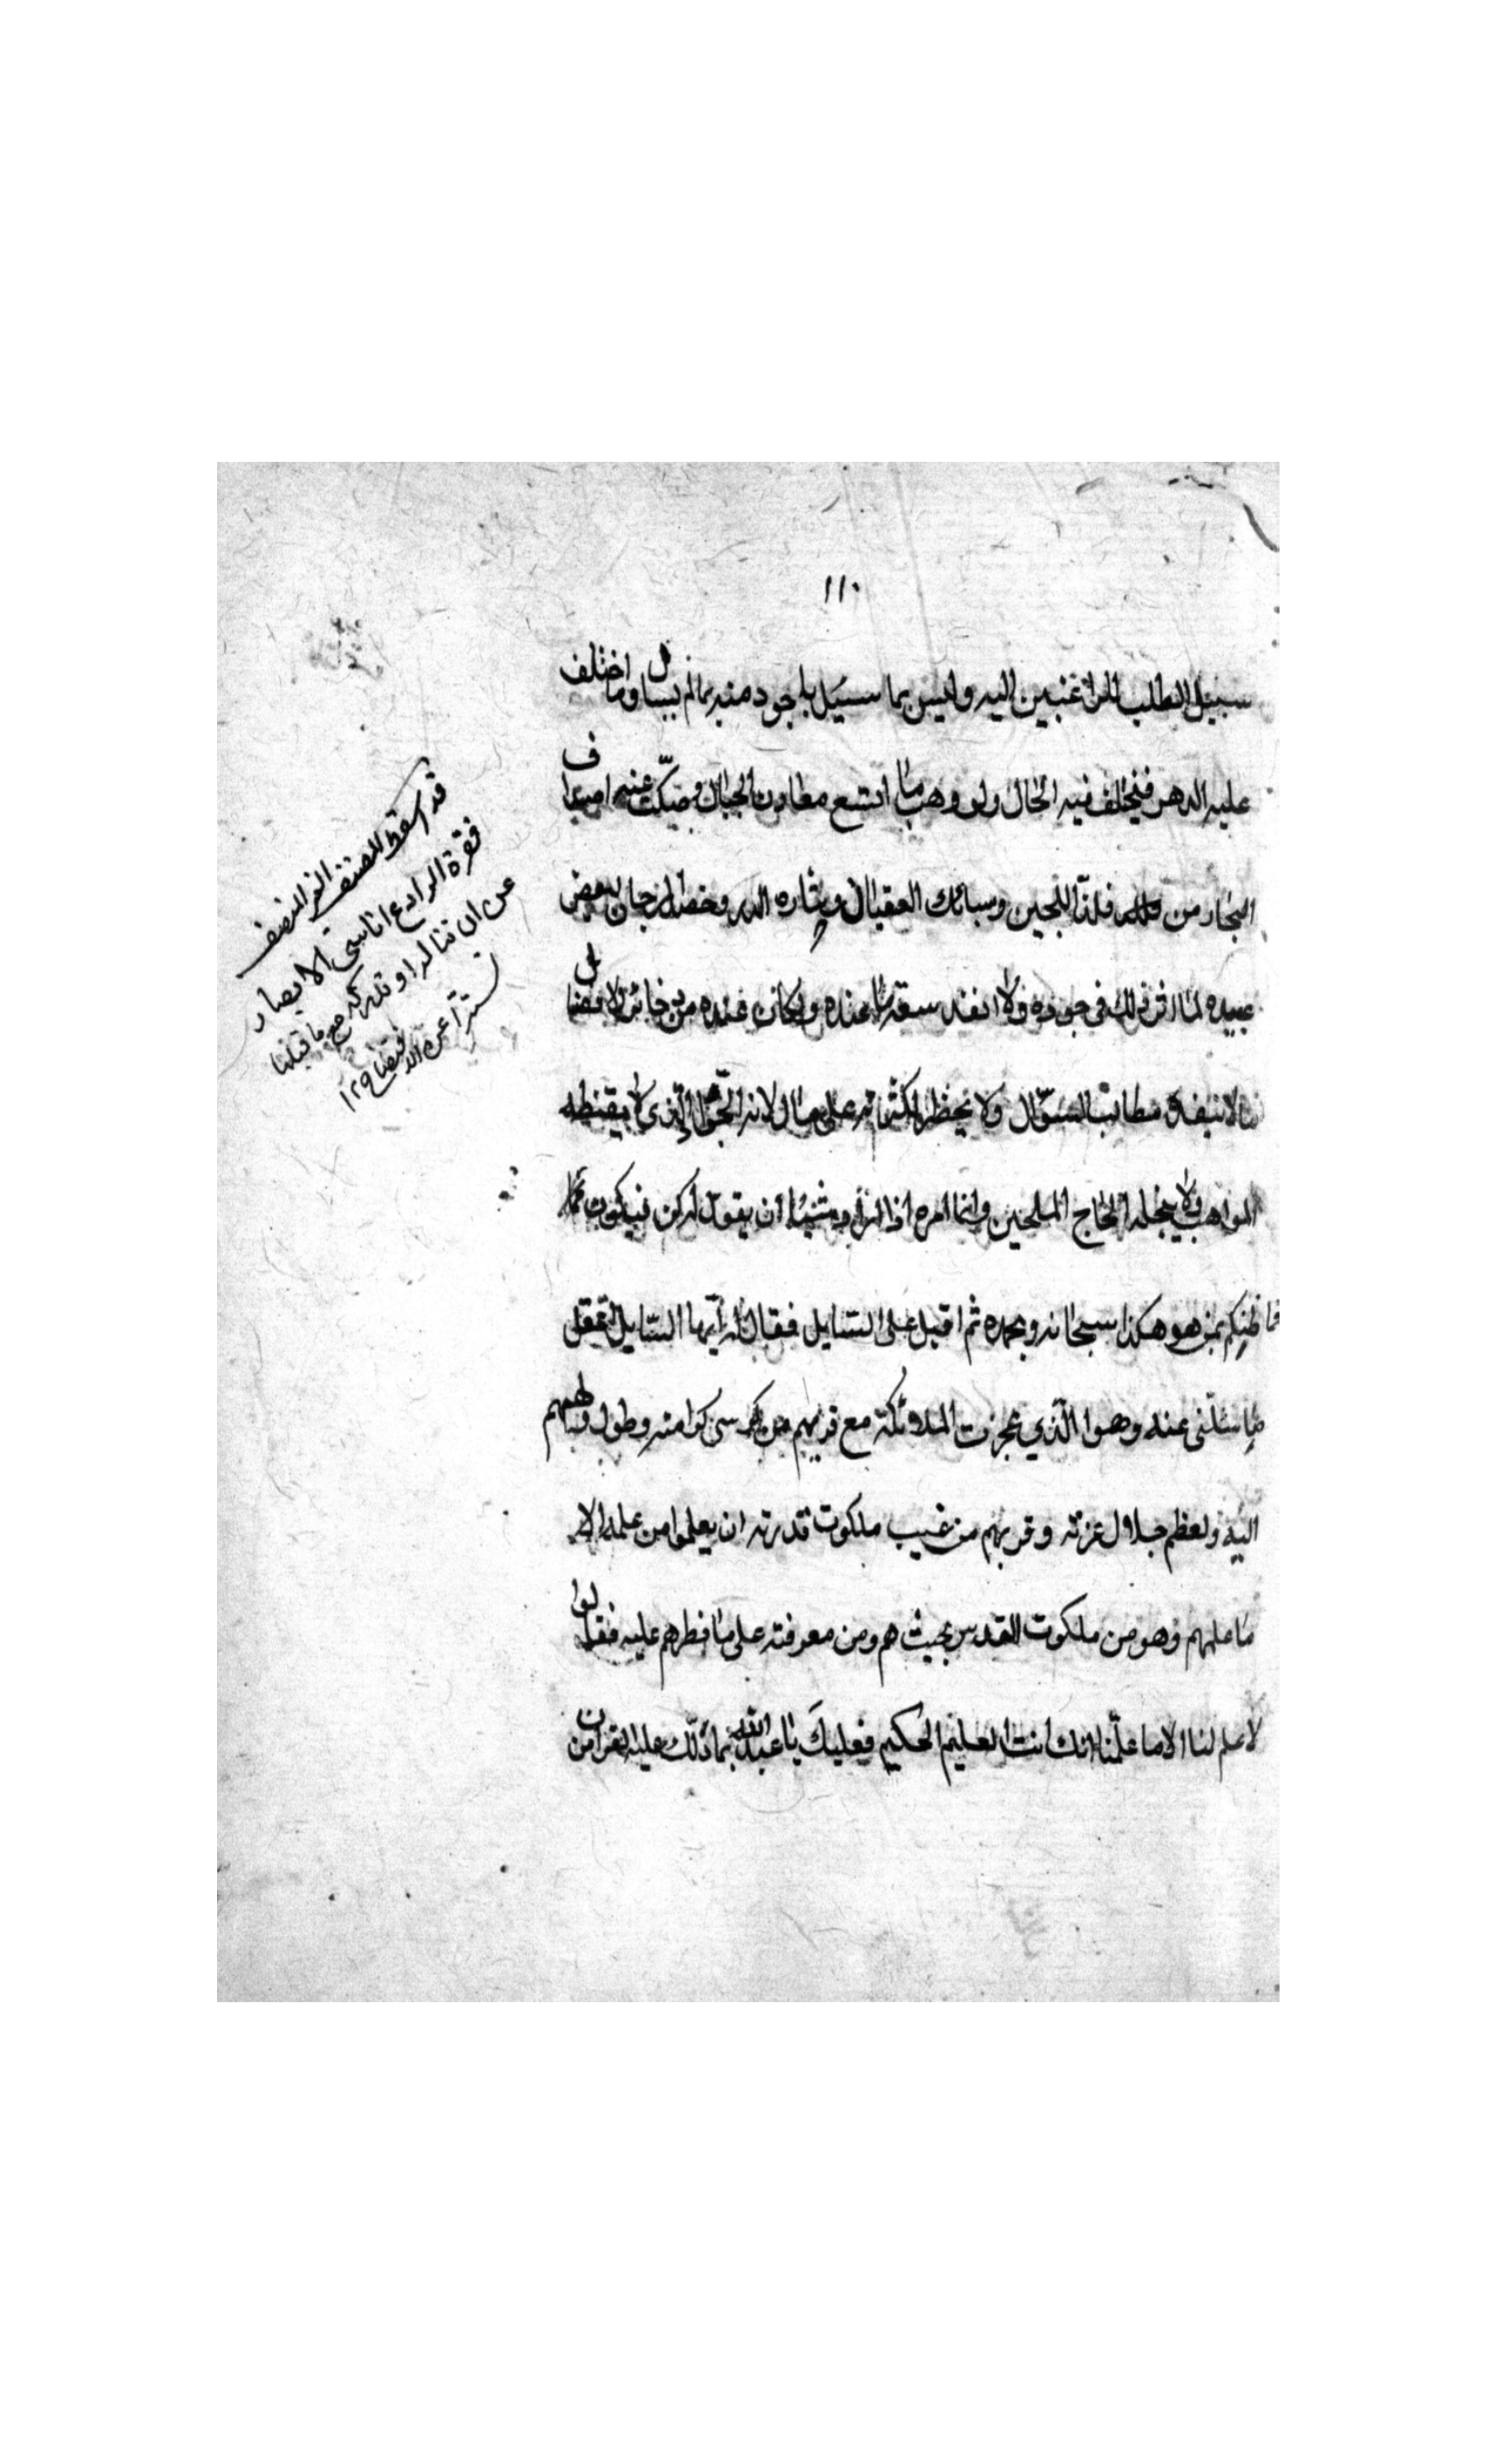 ١١٠
سبيل الطلب للراغبين اليه وليس بما سئيل باجود منه بمالم يسال وما اختلف
عليه الدهر فيختلف فيه الحال ولو وهب ما انشع معادن الجبال وضحكت عنه اصداف
البحار من فلذ اللجين وسبائك العقيان ونثاره الدر وخضائد رجان لبعض
عبيده لما اثر ذلك في جوده ولا انفد سعة ما عنده ولكان عنده من ذخائر الافضال
ما لا ينفده مطالب السؤال ولا يخطر لكثرته على بال لانه الجواد الذي لا ينقصه
المواهب ولا يبخله الحاح الملحين وانما امره اذا اراد شيئا ان يقول له كن فيكون
فما ظنكم بمن هو هكذا سبحانه وبحمده ثم اقبل على السايل فقال له ايها السايل اعقل
ما سئلتني عنه وهو الذي عجزت الملائكة مع قربهم من كرسي كرامته وطول ولههم
اليه وتعظيم جلال عزته وقربهم من غيب ملكوت قدرته ان يعلموا من علمه الا
ما علمهم وهو من ملكوت القدس بحيث هم ومن معرفته على ما فطرهم عليه فقالوا
لا علم لنا الا ما علمتنا انك انت العليم الحكيم فعليك يا عبد الله بما دلك عليه القران من
قد اسقط المصنف او المنصف
فقرة الرادع اناسي الابصار
عن ان تناله او تدركه مع ما قبلها
تسترا عن الافتضاح ١٢٩